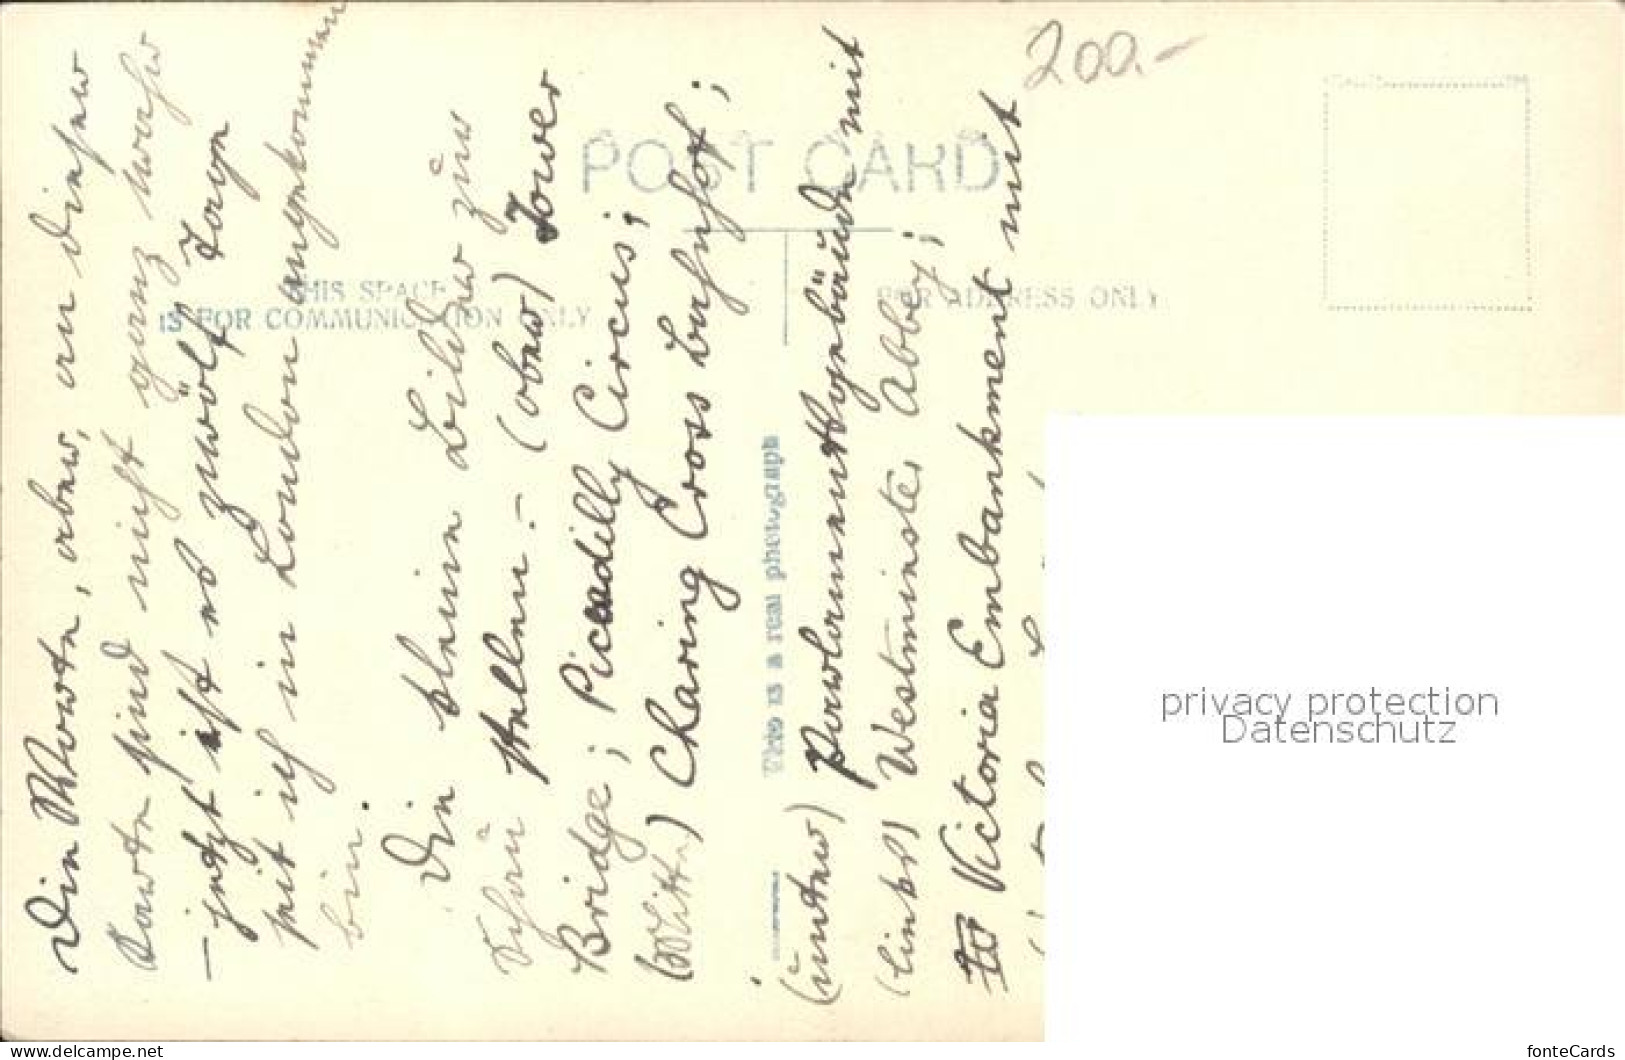 200.-
POST CARD
THIS SPACE
IS FOR COMMUNICATION ONLY
FOR ADDRESS ONLY
This is a real photograph
Die Worte, oben, an dieser
Karte sind nicht ganz wahr
– jetzt ist es zwölf Tage
seit ich in London angekommen
bin.
Die kleine Bilder zur
Schau stellen: – (oben) Tower
Bridge; Piccadilly Circus;
(Mitte) Charing Cross Bahnhof;
(unten) Parlamentsgebäude mit
(links) Westminster Abbey;
Victoria Embankment mit
privacy protection
Datenschutz
www.delcampe.net
fonteCards